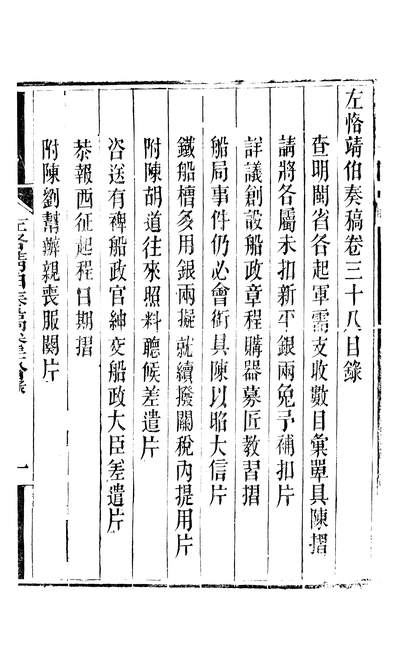 左恪靖伯奏稿卷三十八目錄
查明閩省各起軍需支收數目彙單具陳摺
請將各屬未扣新平銀兩免予補扣片
詳議創設船政章程購器募匠教習摺
船局事件仍必會銜具陳以昭大信片
鐵船槽多用銀兩擬就續撥關稅內提用片
附陳胡道往來照料聽候差遣片
咨送有裨船政官紳交船政大臣差遣片
恭報西征起程日期摺
附陳劉幫辦親喪服闋片
一